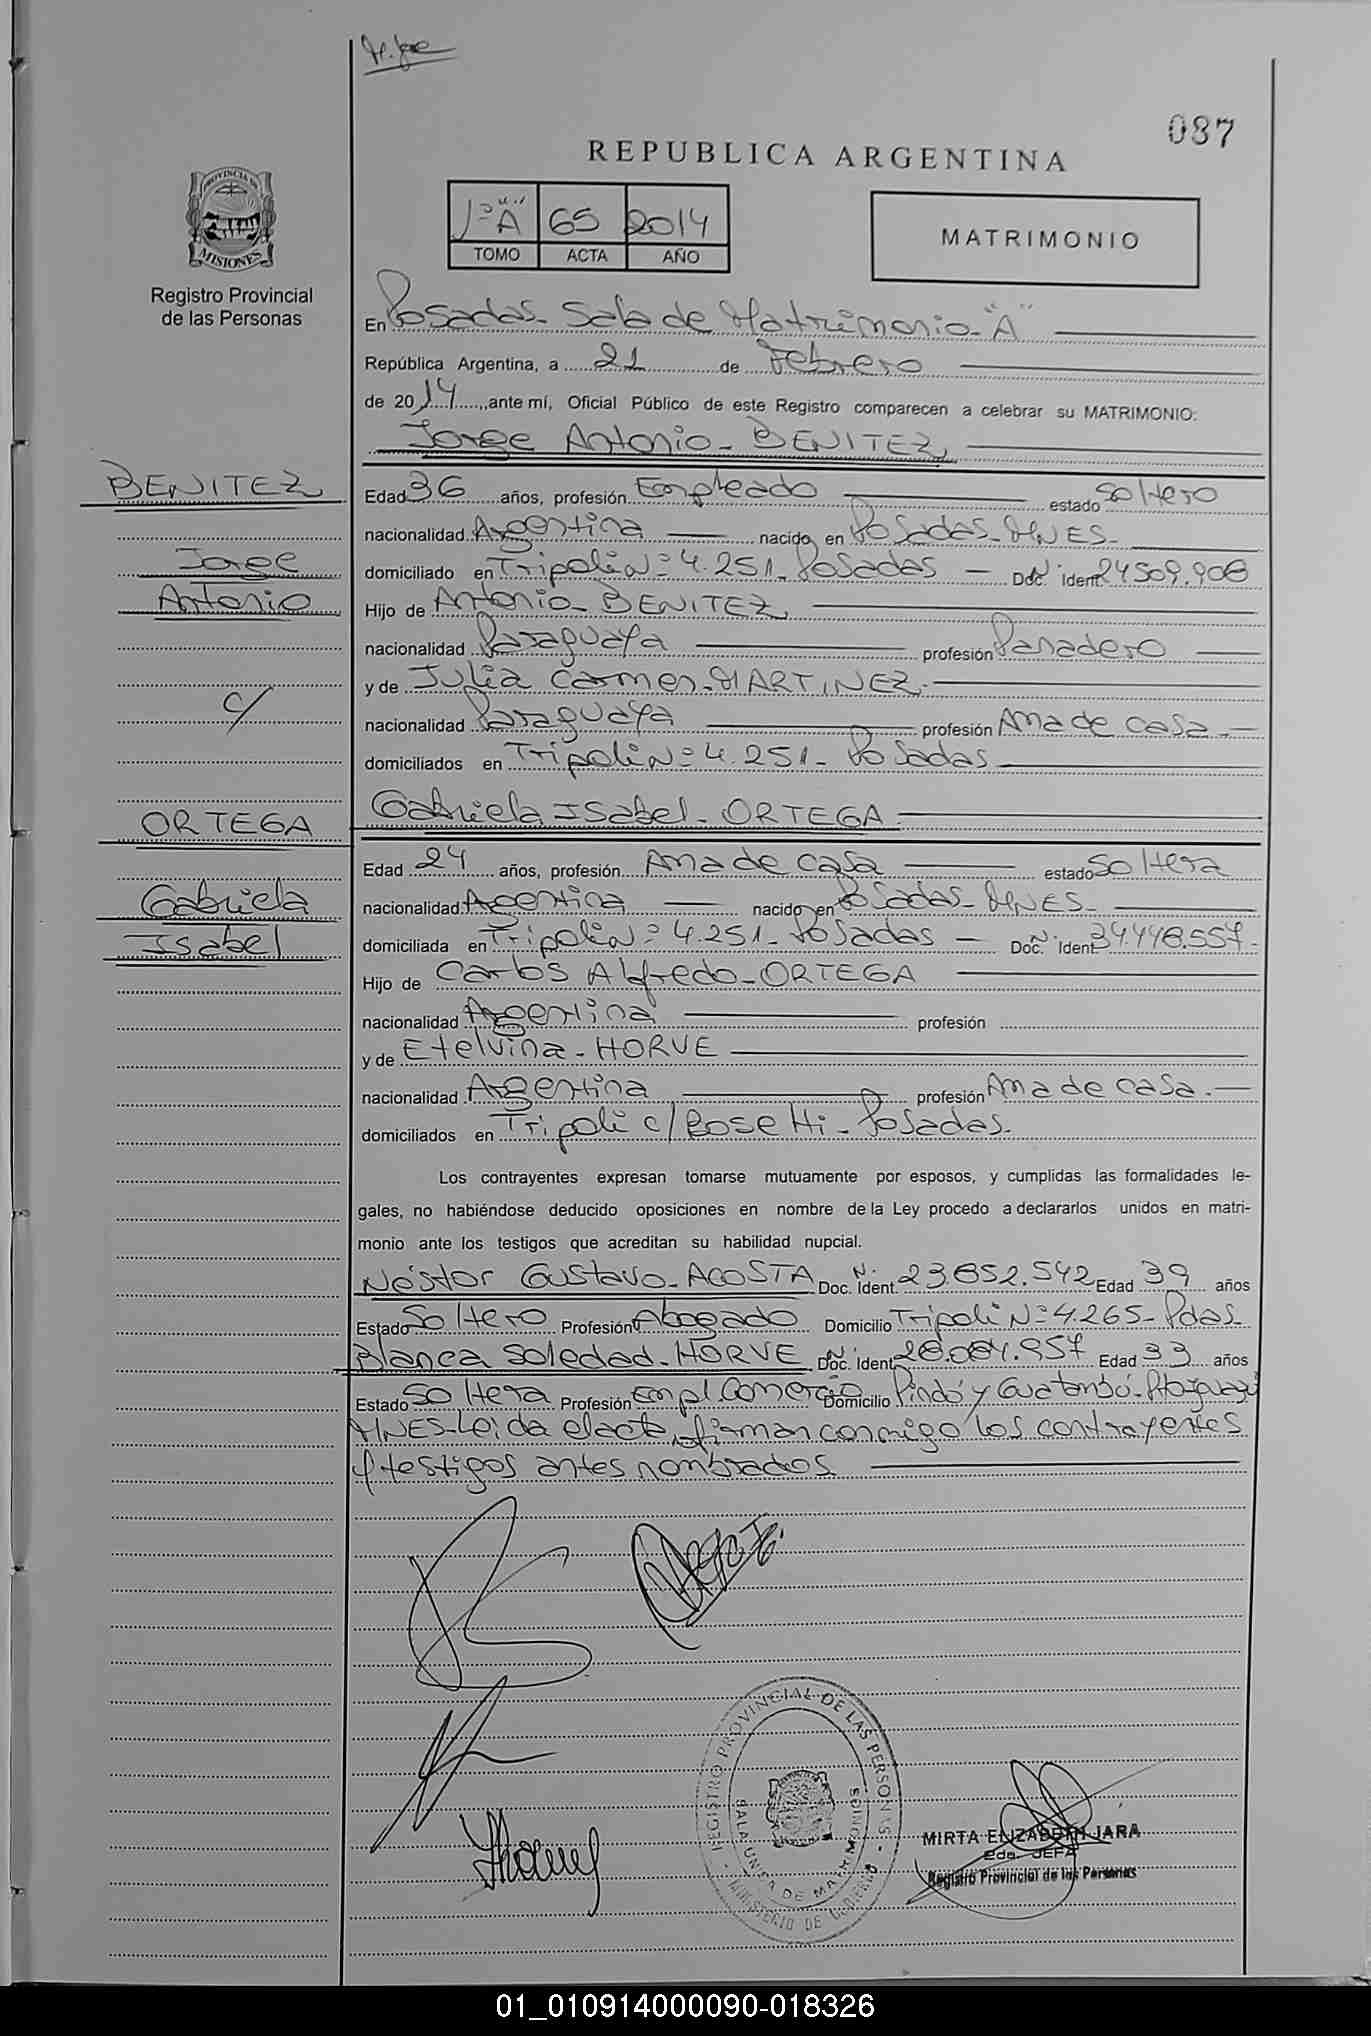 087
REPUBLICA ARGENTINA
PROVINCIA DE
MISIONES
Registro Provincial
de las Personas
1º "A" 65 2014
TOMO ACTA AÑO
MATRIMONIO
En Posadas - Sala de Matrimonio - "A"
República Argentina, a 21 de Febrero
de 2014, ante mí, Oficial Público de este Registro comparecen a celebrar su MATRIMONIO:
Jorge Antonio - BENITEZ
BENITEZ
Jorge
Antonio
c/
ORTEGA
Gabriela
Isabel
Edad 36 años, profesión Empleado estado Soltero
nacionalidad Argentina nacido en Posadas - MNES -
domiciliado en Tripoli Nº 4.251 - Posadas - Doc. Ident. 24509.908
Hijo de Antonio - BENITEZ
nacionalidad Paraguaya profesión Panadero
y de Julia Carmen - MARTINEZ -
nacionalidad Paraguaya profesión Ama de casa -
domiciliados en Tripoli Nº 4.251 - Posadas
Gabriela Isabel - ORTEGA
Edad 24 años, profesión Ama de casa estado Soltera
nacionalidad Argentina nacido en Posadas - MNES -
domiciliada en Tripoli Nº 4.251 - Posadas - Doc. Ident. 34.448.557 -
Hijo de Carlos Alfredo - ORTEGA
nacionalidad Argentina profesión
y de Etelvina - HORVE
nacionalidad Argentina profesión Ama de casa -
domiciliados en Tripoli c/ Rosetti - Posadas.
Los contrayentes expresan tomarse mutuamente por esposos, y cumplidas las formalidades le-
gales, no habiéndose deducido oposiciones en nombre de la Ley procedo a declararlos unidos en matri-
monio ante los testigos que acreditan su habilidad nupcial.
Néstor Gustavo - ACOSTA Doc. Ident. 23.852.542 Edad 39 años
Estado Soltero Profesión Abogado Domicilio Tripoli Nº 4.265 - Pdas -
Blanca Soledad - HORVE Doc. Ident. 28.084.957 Edad 33 años
Estado Soltera Profesión Empl. Comercio Domicilio Pindó y Guatambú -
MNES - Leida el acta, firman conmigo los contrayentes
y testigos antes nombrados
REGISTRO PROVINCIAL DE LAS PERSONAS
SALA UNICA DE MATRIMONIOS
MINISTERIO DE GOBIERNO
MIRTA ELIZABETH JARA
2da. JEFA
Registro Provincial de las Personas
01_010914000090-018326